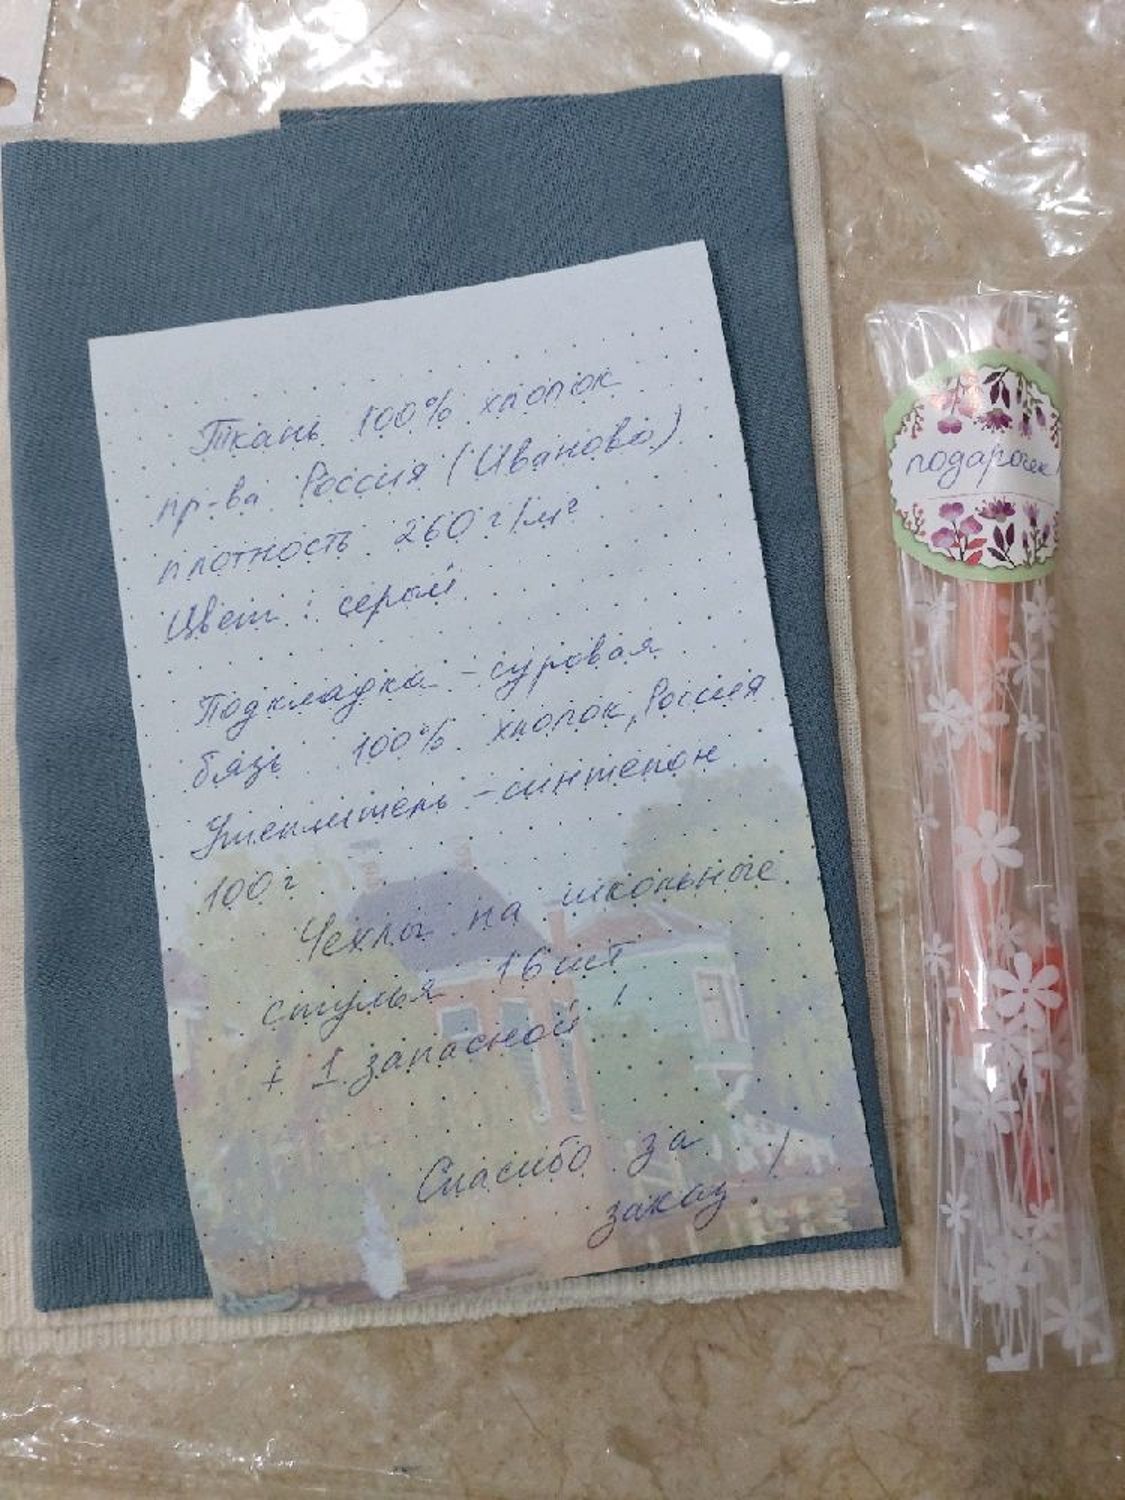 Ткань 100% хлопок
пр-ва Россия (Иваново)
плотность 260 г/м²
Цвет: серый
Подкладка - суровая
бязь 100% хлопок, Россия
Утеплитель - синтепон
100 г
Чехлы на школьные
стулья 16 шт
+ 1 запасной!
Спасибо за
заказ!
подарочек!